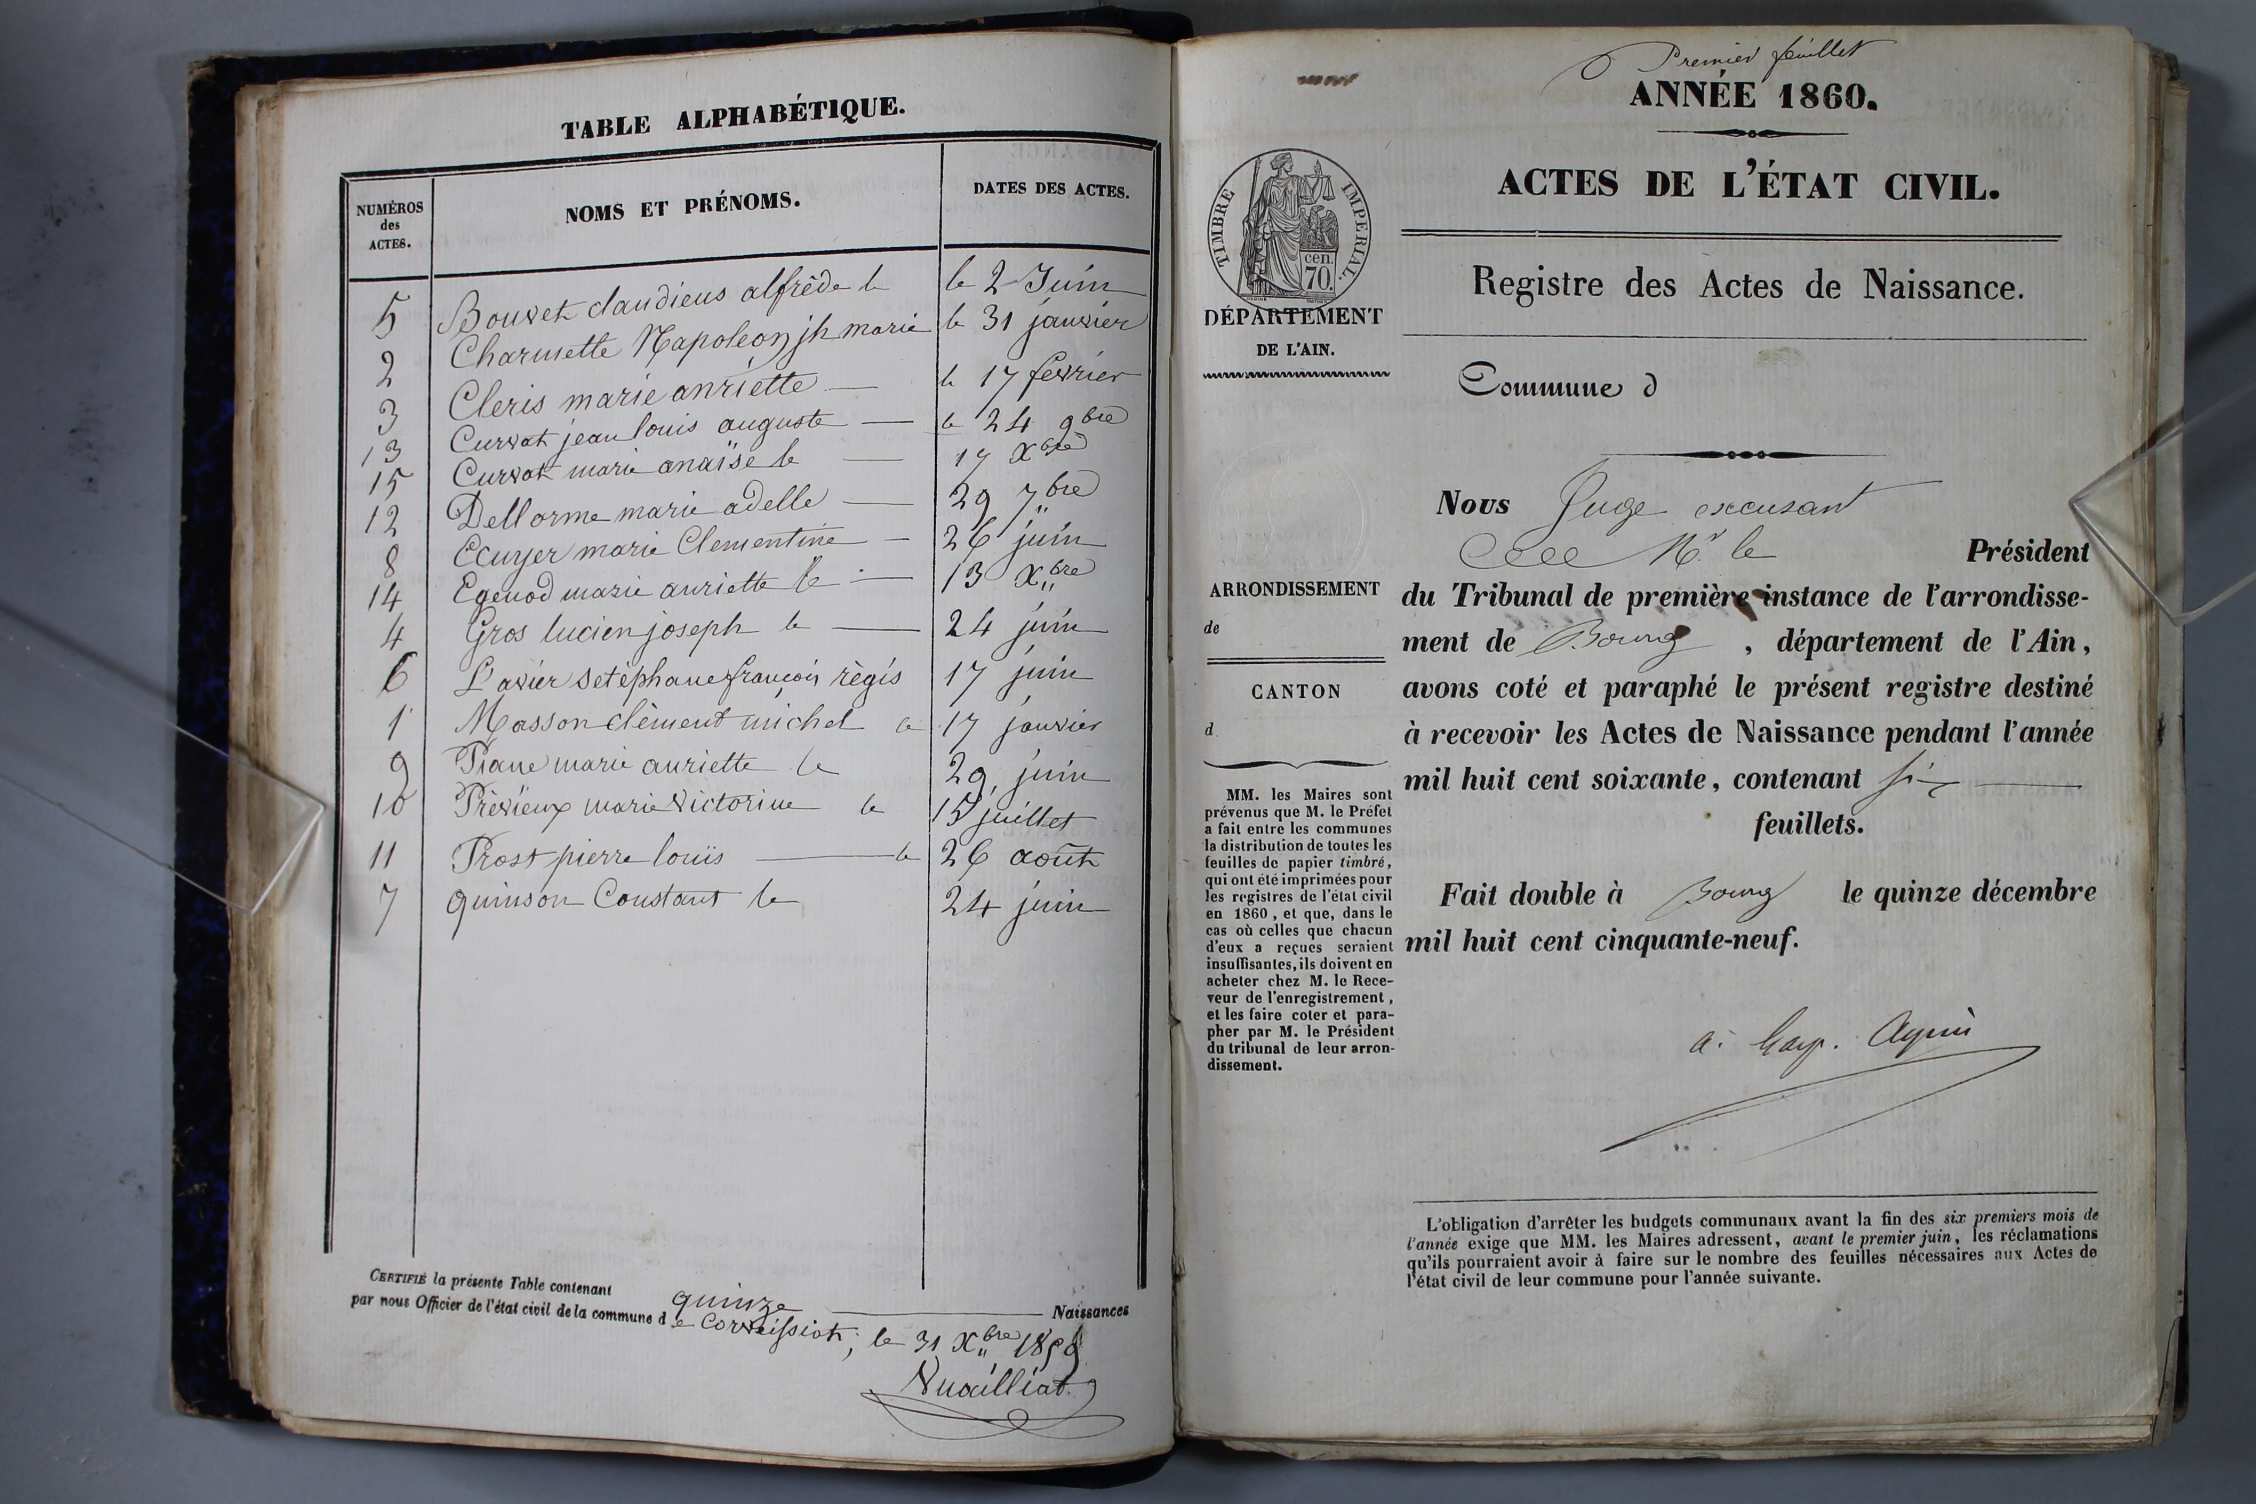 TABLE ALPHABÉTIQUE.
NUMÉROS
des
ACTES.
NOMS ET PRÉNOMS.
DATES DES ACTES.
5 Bouvet claudieus alfrède le le 2 Juin
2 Charmette Napoléon jh marie le 31 janvier
3 Cleris marie anriette le 17 fevrier
13 Curvat jean louis auguste le 24 9bre
15 Curvat marie anaïse le 17 Xbre
12 Dellorme marie adelle 29 7bre
8 Ecuyer marie Clementine 26 juin
14 Egenod marie anriette le 13 Xbre
4 Gros lucien joseph le 24 juin
6 Lavier setéphane françois règis 17 juin
1 Masson clèment michel le 17 janvier
9 Piane marie anriette le 29 juin
10 Prèvieux marie victorine le 15 juillet
11 Prost pierre louis le 26 août
7 quinson Constant le 24 juin
CERTIFIÉ la présente Table contenant quinze Naissances
par nous Officier de l'état civil de la commune de Corveissiat, le 31 Xbre 1859
Vuailliat
Premier feuillet
ANNÉE 1860.
ACTES DE L'ÉTAT CIVIL.
Registre des Actes de Naissance.
TIMBRE IMPERIAL.
cen.
70.
DÉPARTEMENT
DE L'AIN.
Commune d
Nous Juge excusant
Mr le Président
du Tribunal de première instance de l'arrondisse-
ment de Bourg, département de l'Ain,
avons coté et paraphé le présent registre destiné
à recevoir les Actes de Naissance pendant l'année
mil huit cent soixante, contenant six
feuillets.
Fait double à Bourg le quinze décembre
mil huit cent cinquante-neuf.
ARRONDISSEMENT
de
CANTON
d
MM. les Maires sont
prévenus que M. le Préfet
a fait entre les communes
la distribution de toutes les
feuilles de papier timbré,
qui ont été imprimées pour
les registres de l'état civil
en 1860, et que, dans le
cas où celles que chacun
d'eux a reçues seraient
insuffisantes, ils doivent en
acheter chez M. le Rece-
veur de l'enregistrement,
et les faire coter et para-
pher par M. le Président
du tribunal de leur arron-
dissement.
L'obligation d'arrêter les budgets communaux avant la fin des six premiers mois de
l'année exige que MM. les Maires adressent, avant le premier juin, les réclamations
qu'ils pourraient avoir à faire sur le nombre des feuilles nécessaires aux Actes de
l'état civil de leur commune pour l'année suivante.